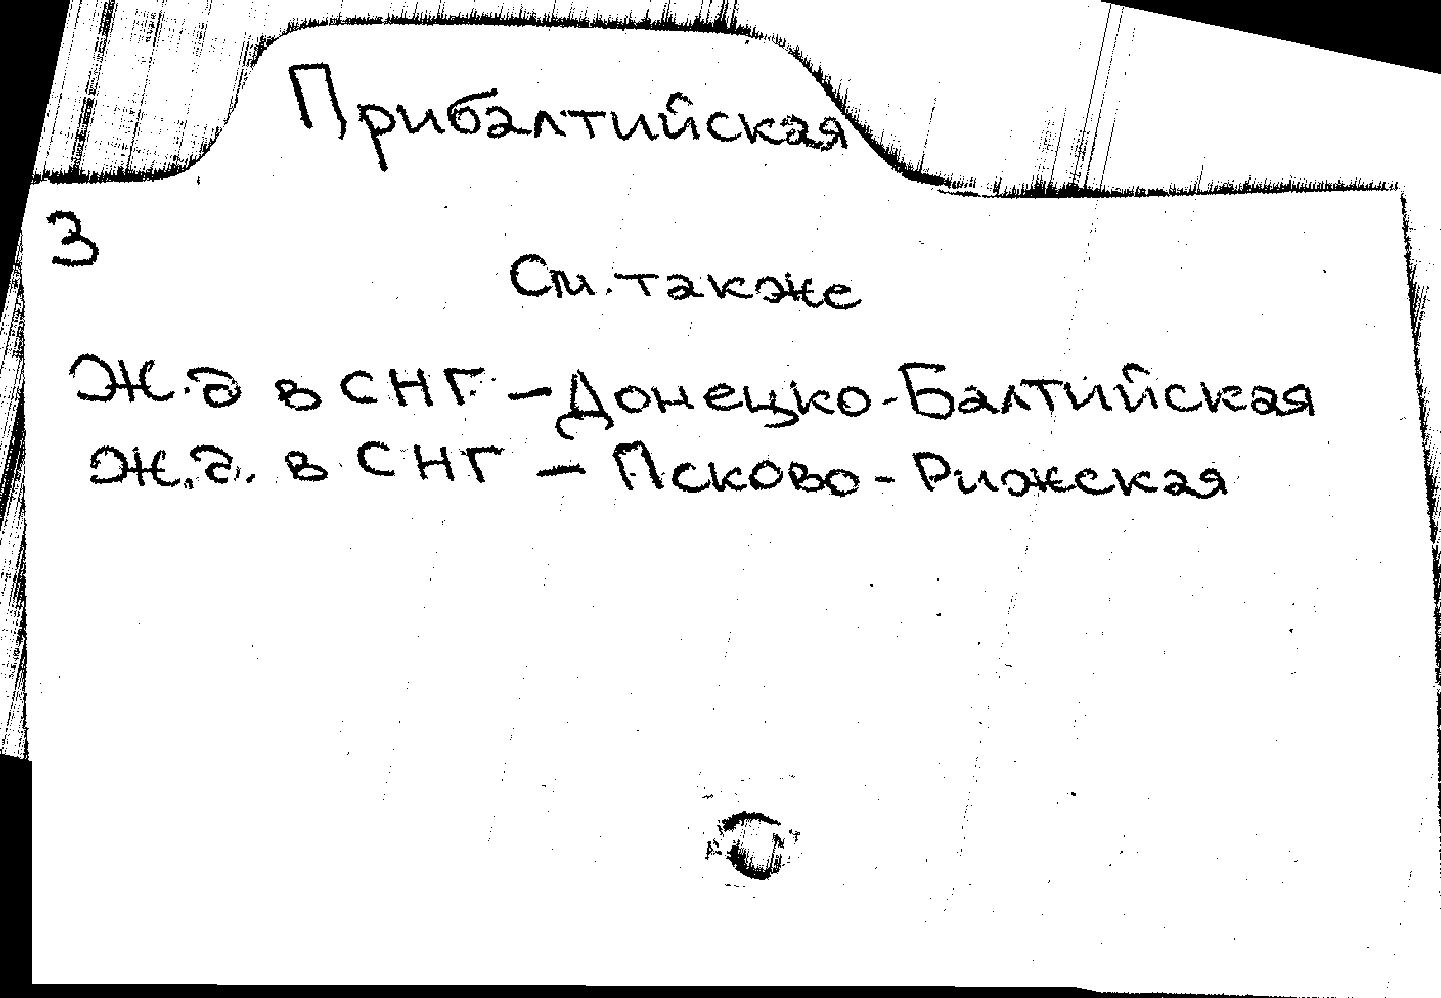 Прибалтийская
3
См. также
Ж.д в СНГ – Донецко-Балтийская
Ж.д. в СНГ – Псково-Рижская